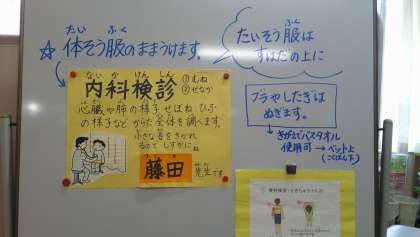 たい ふく
☆体そう服のままうけます。
たいそう服は
ふく
すはだの上に
ないか けんしん
内科検診
①むね
②せなか
心臓や肺の様子せぼね、ひふ
の様子などからだ全体を調べます。
小さな音をきかれ
るのでしずかにね
藤田
先生です
ブラやしたぎは
ぬぎます。
きがえでバスタオル
使用可→ベット上